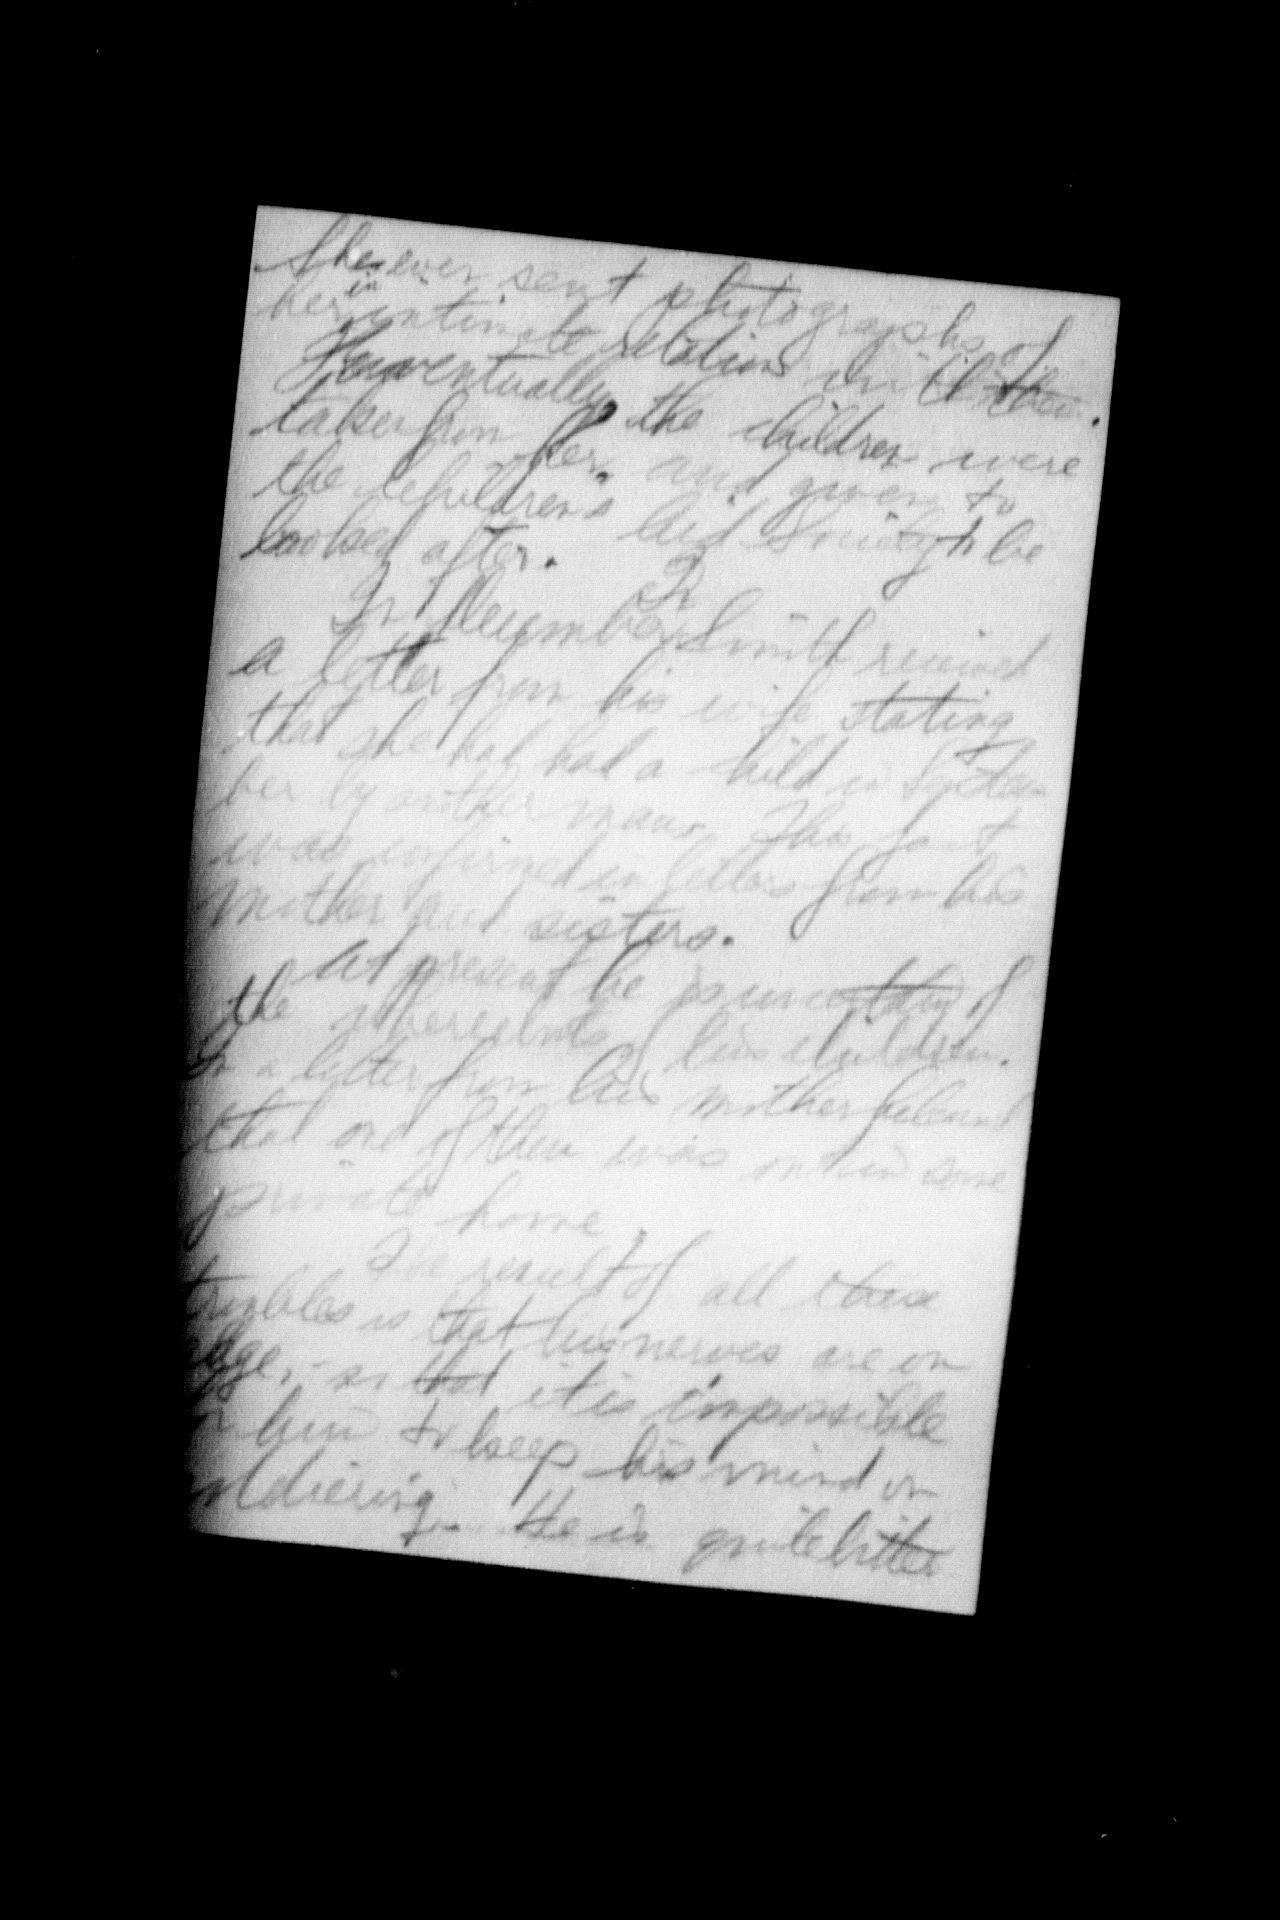 She even sent photographs of
her in intimate relations with them.
Eventually the children were
taken from her and given to
the Children's Aid Society to be
looked after.
In December Smith received
a letter from his wife stating
that she had had a child in Septem
ber by another man. This fact
was confirmed in letters from his
mother and sisters.
At present he is uncertain of
the whereabouts of his children.
In a letter from his mother
that one of them was in some
private home.
The result of all these
troubles is that his nerves are on
edge, so that it is impossible
for him to keep his mind on
soldiering. He is quite bitter